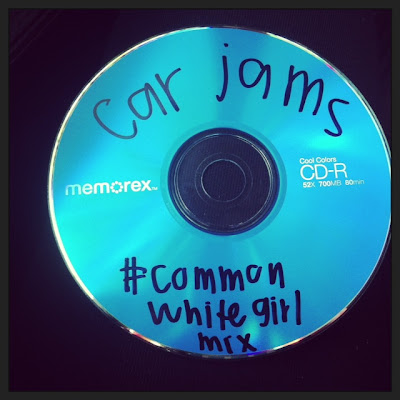 car jams
memorex™
Cool Colors
CD-R
52X 700MB 80min
#common
whitegirl
mrx